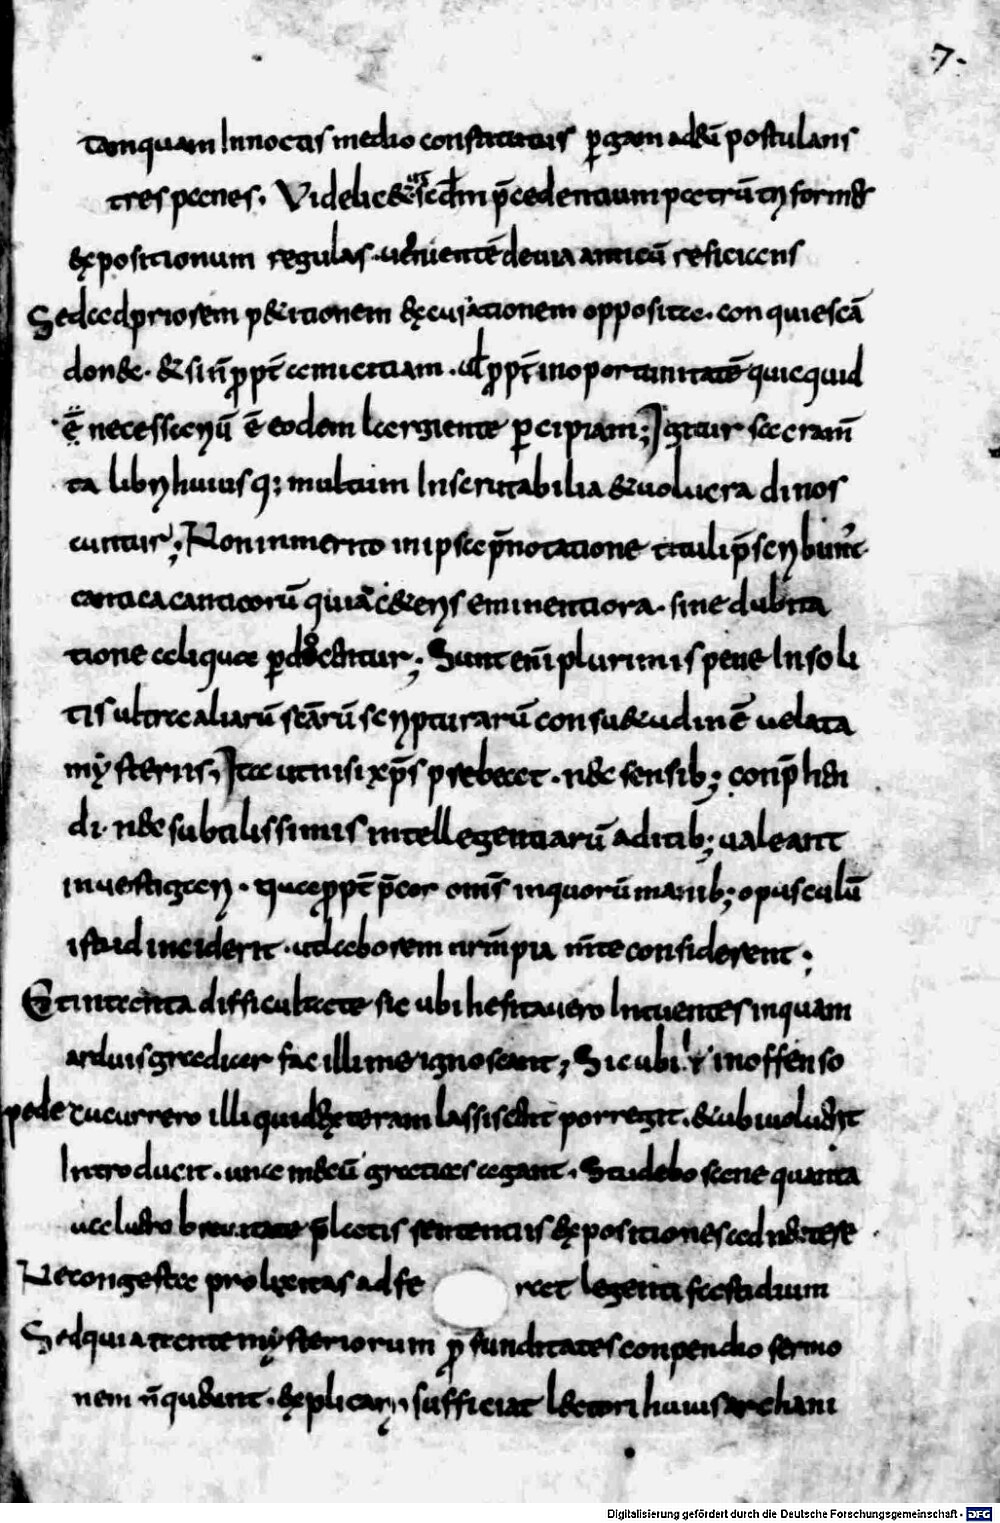 7.
tamquam In noctis medio constitutus ꝑgam ad eū postulans
tres panes. Videlic& ut scdm p̄cedentium patrū tꝝ form&
exposicionum regulas. ueniente de uia amicū reficiens
Sed ad priorem p&itionem excusationem opposita. conquiescā
don&. & si n̄ propt̄ amicitiam. uel propt̄ inoportunitatē quicquid
ē necessariū ē eodem largiente percipiam; Igitur sacram̄
ta libri huius q; multum Inscrutabilia & uolucra dinos
cuntur; Non inmerito in ipsa p̄notatione tituli p̄scribunt̄
cantica canticorū quia c&eris eminentiora. sine dubita
tione aliqua perdocentur; Sunt enī plurimis pene Insoli
tis ultra aliarū scārū scripturarū consu&udinē uelata
mysteriis, Ita ut nisi xp̄s prebeat. n&c sensib; conp̄hen
di. n&c subtilissimis intellegentiarū aditib; ualeant
inuestigari. quapropt̄ p̄cor oms̄ in quorū manib; opusculū
istud inciderit. ut laborem nr̄m pia m̄te considerent;
Et in tanta difficultate sic ubi hesitauero Intuentes inquam
arduis gradiar fac illi me ignoscant; Sic ubi inoffenso
pede cucurrero illi quid exteram lassiscenti porregit. & ubi uoluerit
Introducit. una mecū gratias agant. Studebo sane quanta
ualuero breuitate p̄latis sententiis expositiones adnectere
Ne congesta prolixitas adfe rat legenti fastidium
Sed quia tante mysteriorum profunditates conpendio sermo
nem n̄ queunt. explicari, sufficiat lectori huius archani
Digitalisierung gefördert durch die Deutsche Forschungsgemeinschaft - DFG